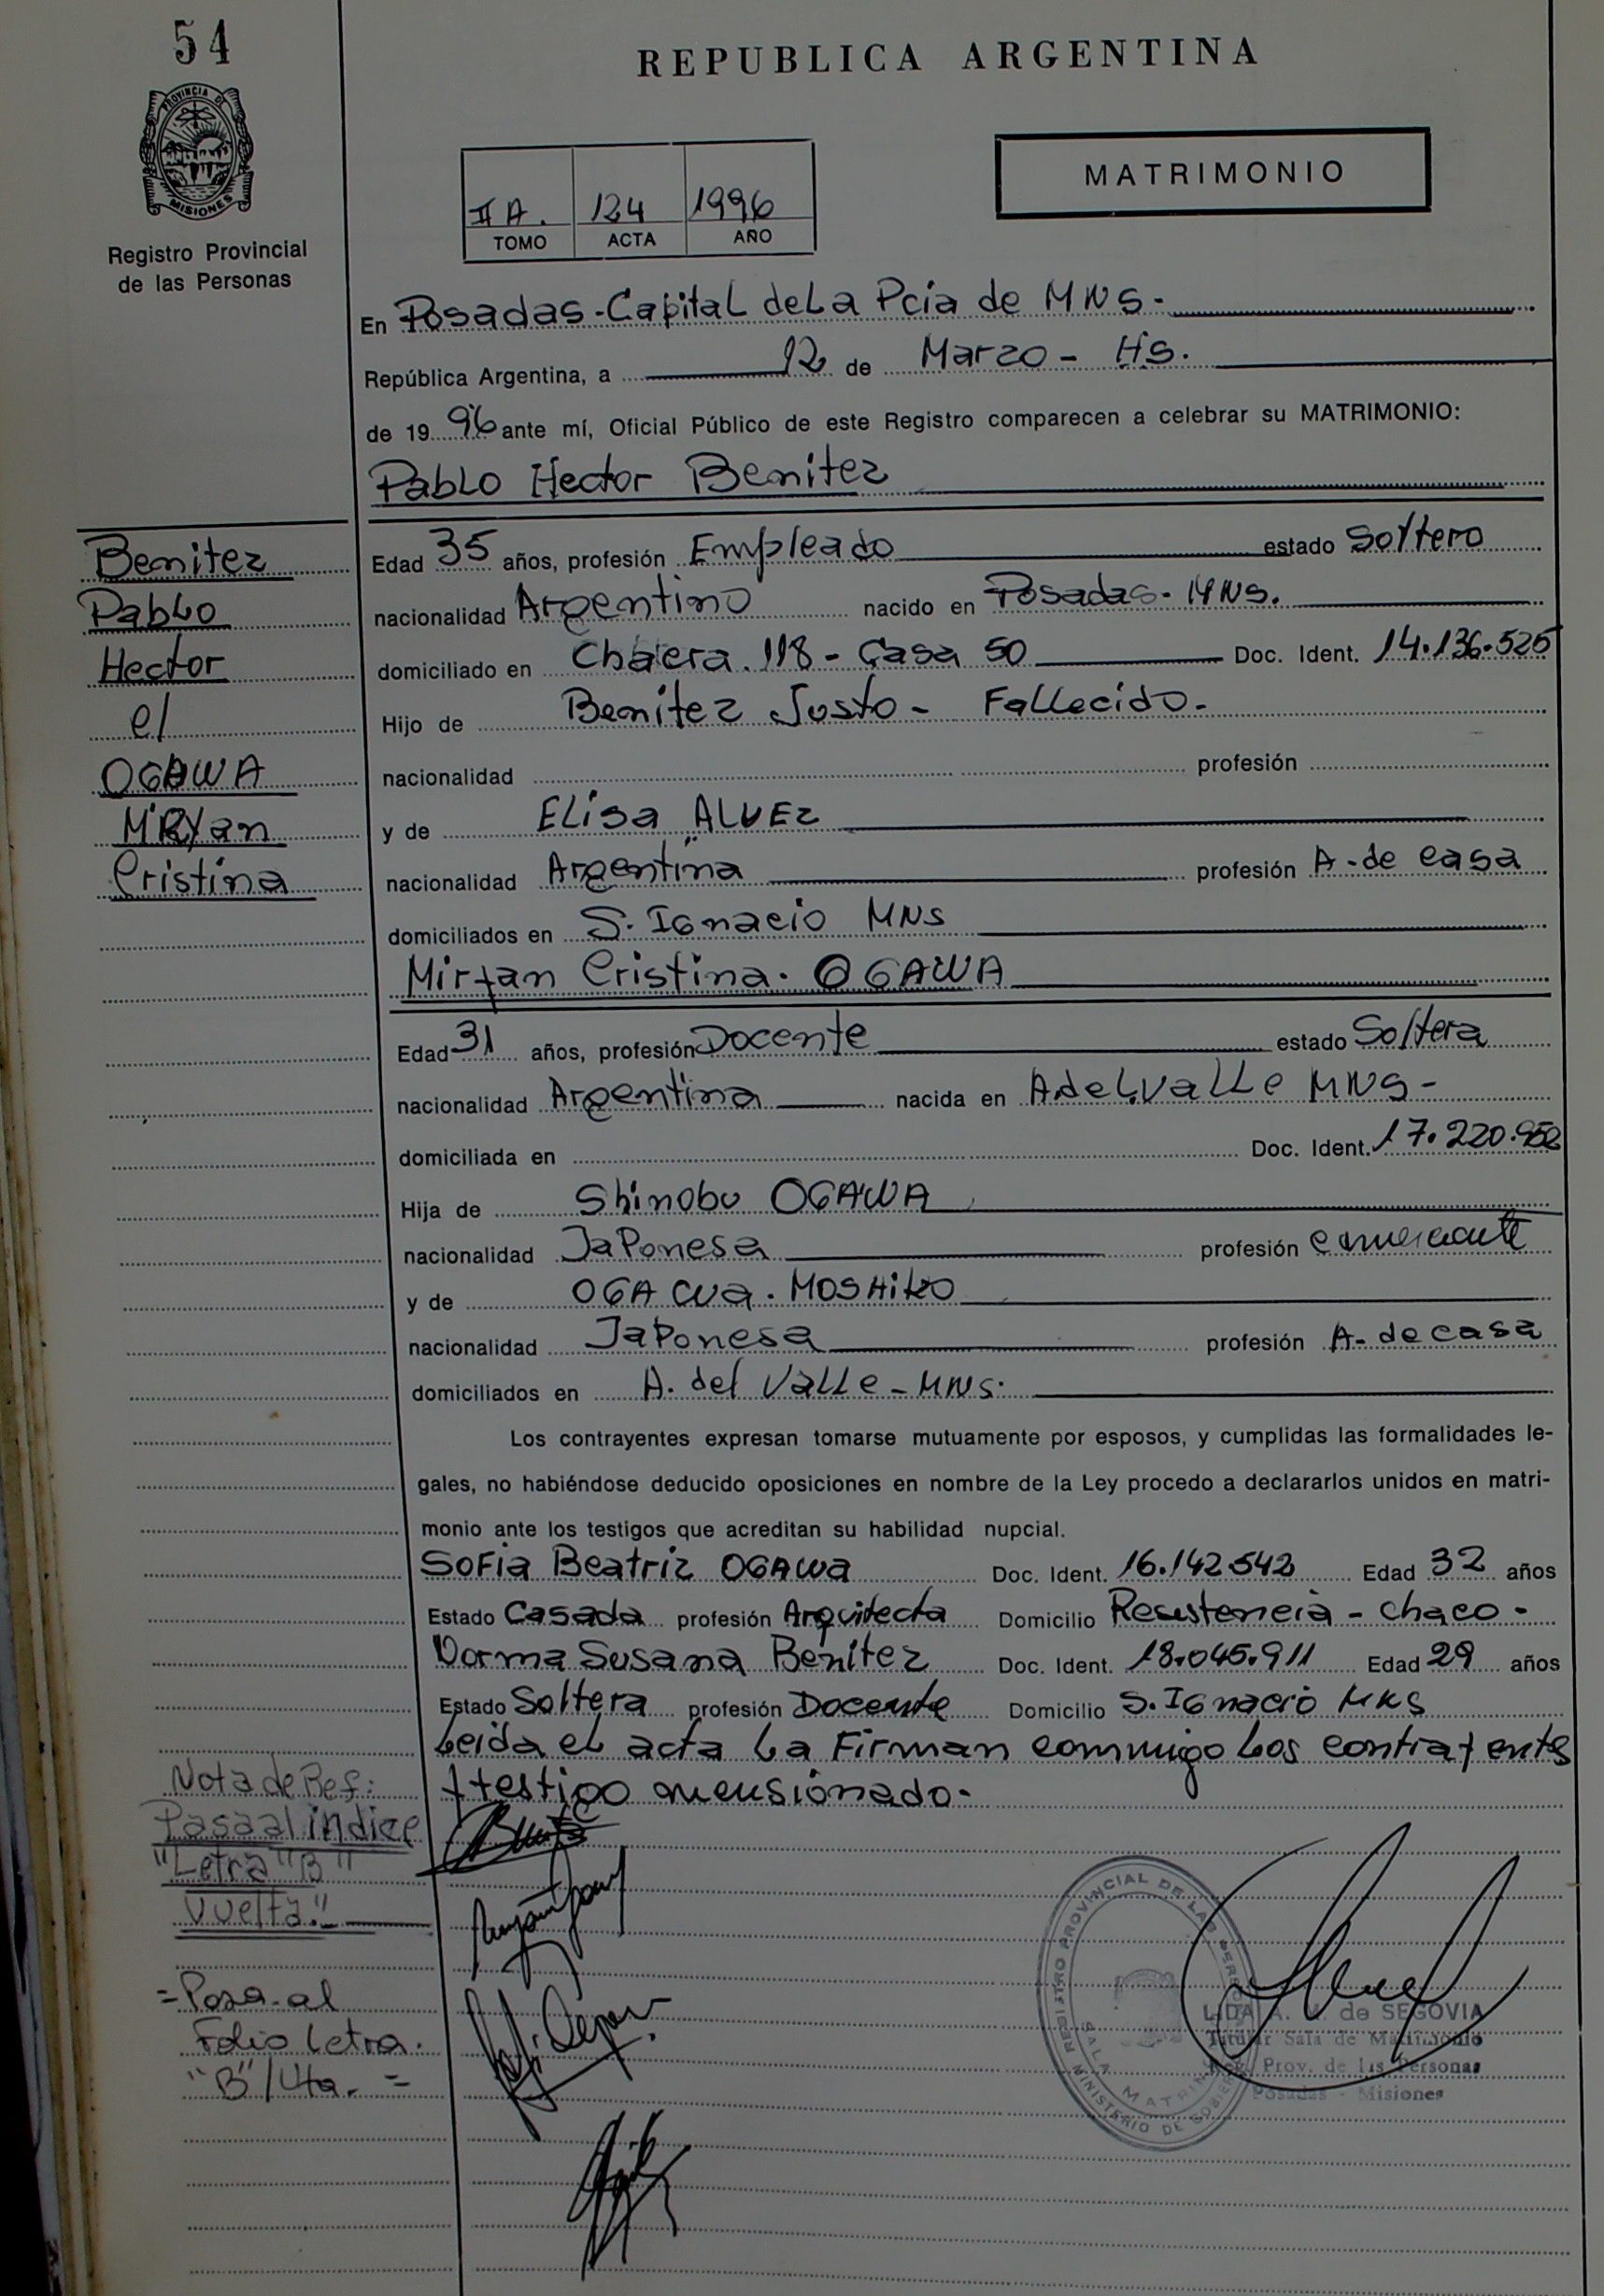 54
REPUBLICA ARGENTINA
PROVINCIA DE
MISIONES
Registro Provincial
de las Personas
MATRIMONIO
II A. 124 1996
TOMO ACTA AÑO
En Posadas-Capital de La Pcia de MNS.
República Argentina, a 12 de Marzo - HS.
de 19 96 ante mí, Oficial Público de este Registro comparecen a celebrar su MATRIMONIO:
Pablo Hector Benitez
Benitez
Pablo
Hector
el
OGAWA
MiRyan
Cristina
Edad 35 años, profesión Empleado estado Soltero
nacionalidad Argentino nacido en Posadas- MNS.
domiciliado en Chacra. 118 - Casa 50 Doc. Ident. 14.136.525
Hijo de Benitez Justo - Fallecido.
nacionalidad profesión
y de Elisa ALVEZ
nacionalidad Argentina profesión A-de casa
domiciliados en S. Ignacio MNS
Miryan Cristina. OGAWA
Edad 31 años, profesión Docente estado Soltera
nacionalidad Argentina nacida en A.deL.vaLLe MNS-
domiciliada en Doc. Ident. 17.220.952
Hija de Shinobu OGAWA
nacionalidad JaPonesa profesión comerciante
y de OGAwa. MOSHiko
nacionalidad JaPonesa profesión A- de casa
domiciliados en A. del VaLLe - MNS.
Los contrayentes expresan tomarse mutuamente por esposos, y cumplidas las formalidades le-
gales, no habiéndose deducido oposiciones en nombre de la Ley procedo a declararlos unidos en matri-
monio ante los testigos que acreditan su habilidad nupcial.
Sofia Beatriz OGAWa Doc. Ident. 16.142.542 Edad 32 años
Estado Casada profesión Arquitecta Domicilio Resistencia - Chaco -
Norma Susana Benitez Doc. Ident. 18.045.911 Edad 29 años
Estado Soltera profesión Docente Domicilio S. IGnacio MNS
Leida el acta La Firman commigo Los contrayente
y testigo mensionado.
Nota de Ref:
Pasa al indice
"Letra "B"
Vuelta."
= Pasa al
Folio Letra.
"B"/Vta. =
REGISTRO PROVINCIAL DE LAS PERSONAS
SALA MATRIMONIO
MINISTERIO DE GOBIERNO
LIDA A. de SEGOVIA
Titular Sala de Matrimonio
Reg. Prov. de las Personas
Posadas - Misiones